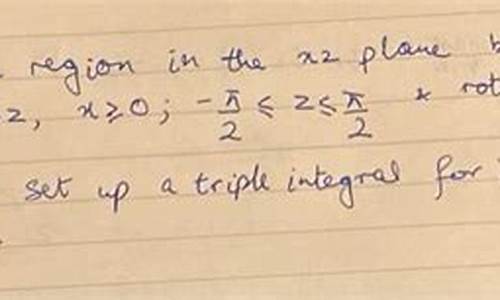 region in the xz plane
z, x ≥ 0; -π/2 ≤ z ≤ π/2 & rot
set up a triple integral for